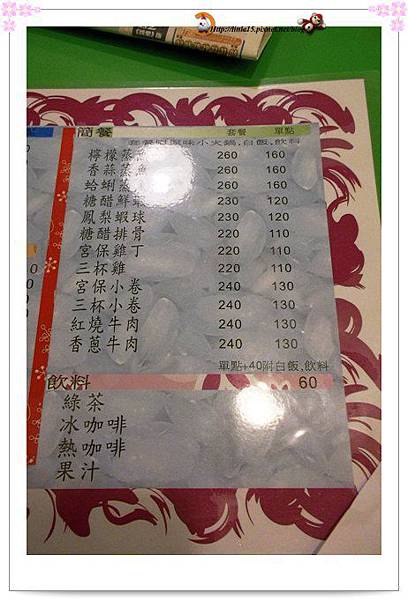 http://linla15.pixnet.net/blog
簡餐 套餐 單點
套餐附原味小火鍋,白飯,飲料
檸檬蒸魚 260 160
香蒜蒸魚 260 160
蛤蜊蒸 260 160
糖醋鮮 230 120
鳳梨蝦球 230 120
糖醋排骨 220 110
宮保雞丁 220 110
三杯雞 220 110
宮保小卷 240 130
三杯小卷 240 130
紅燒牛肉 240 130
香蔥牛肉 240 130
單點+40附白飯,飲料
飲料 60
綠茶
冰咖啡
熱咖啡
果汁